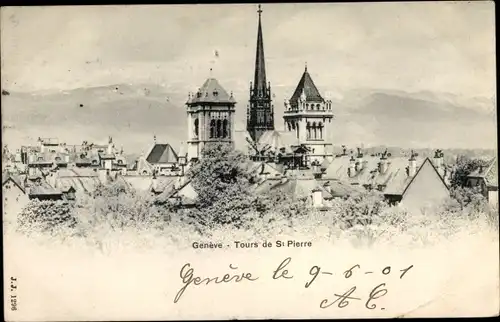 Genève - Tours de St Pierre
Genève le 9-6-01
A C.
J.J. 1296